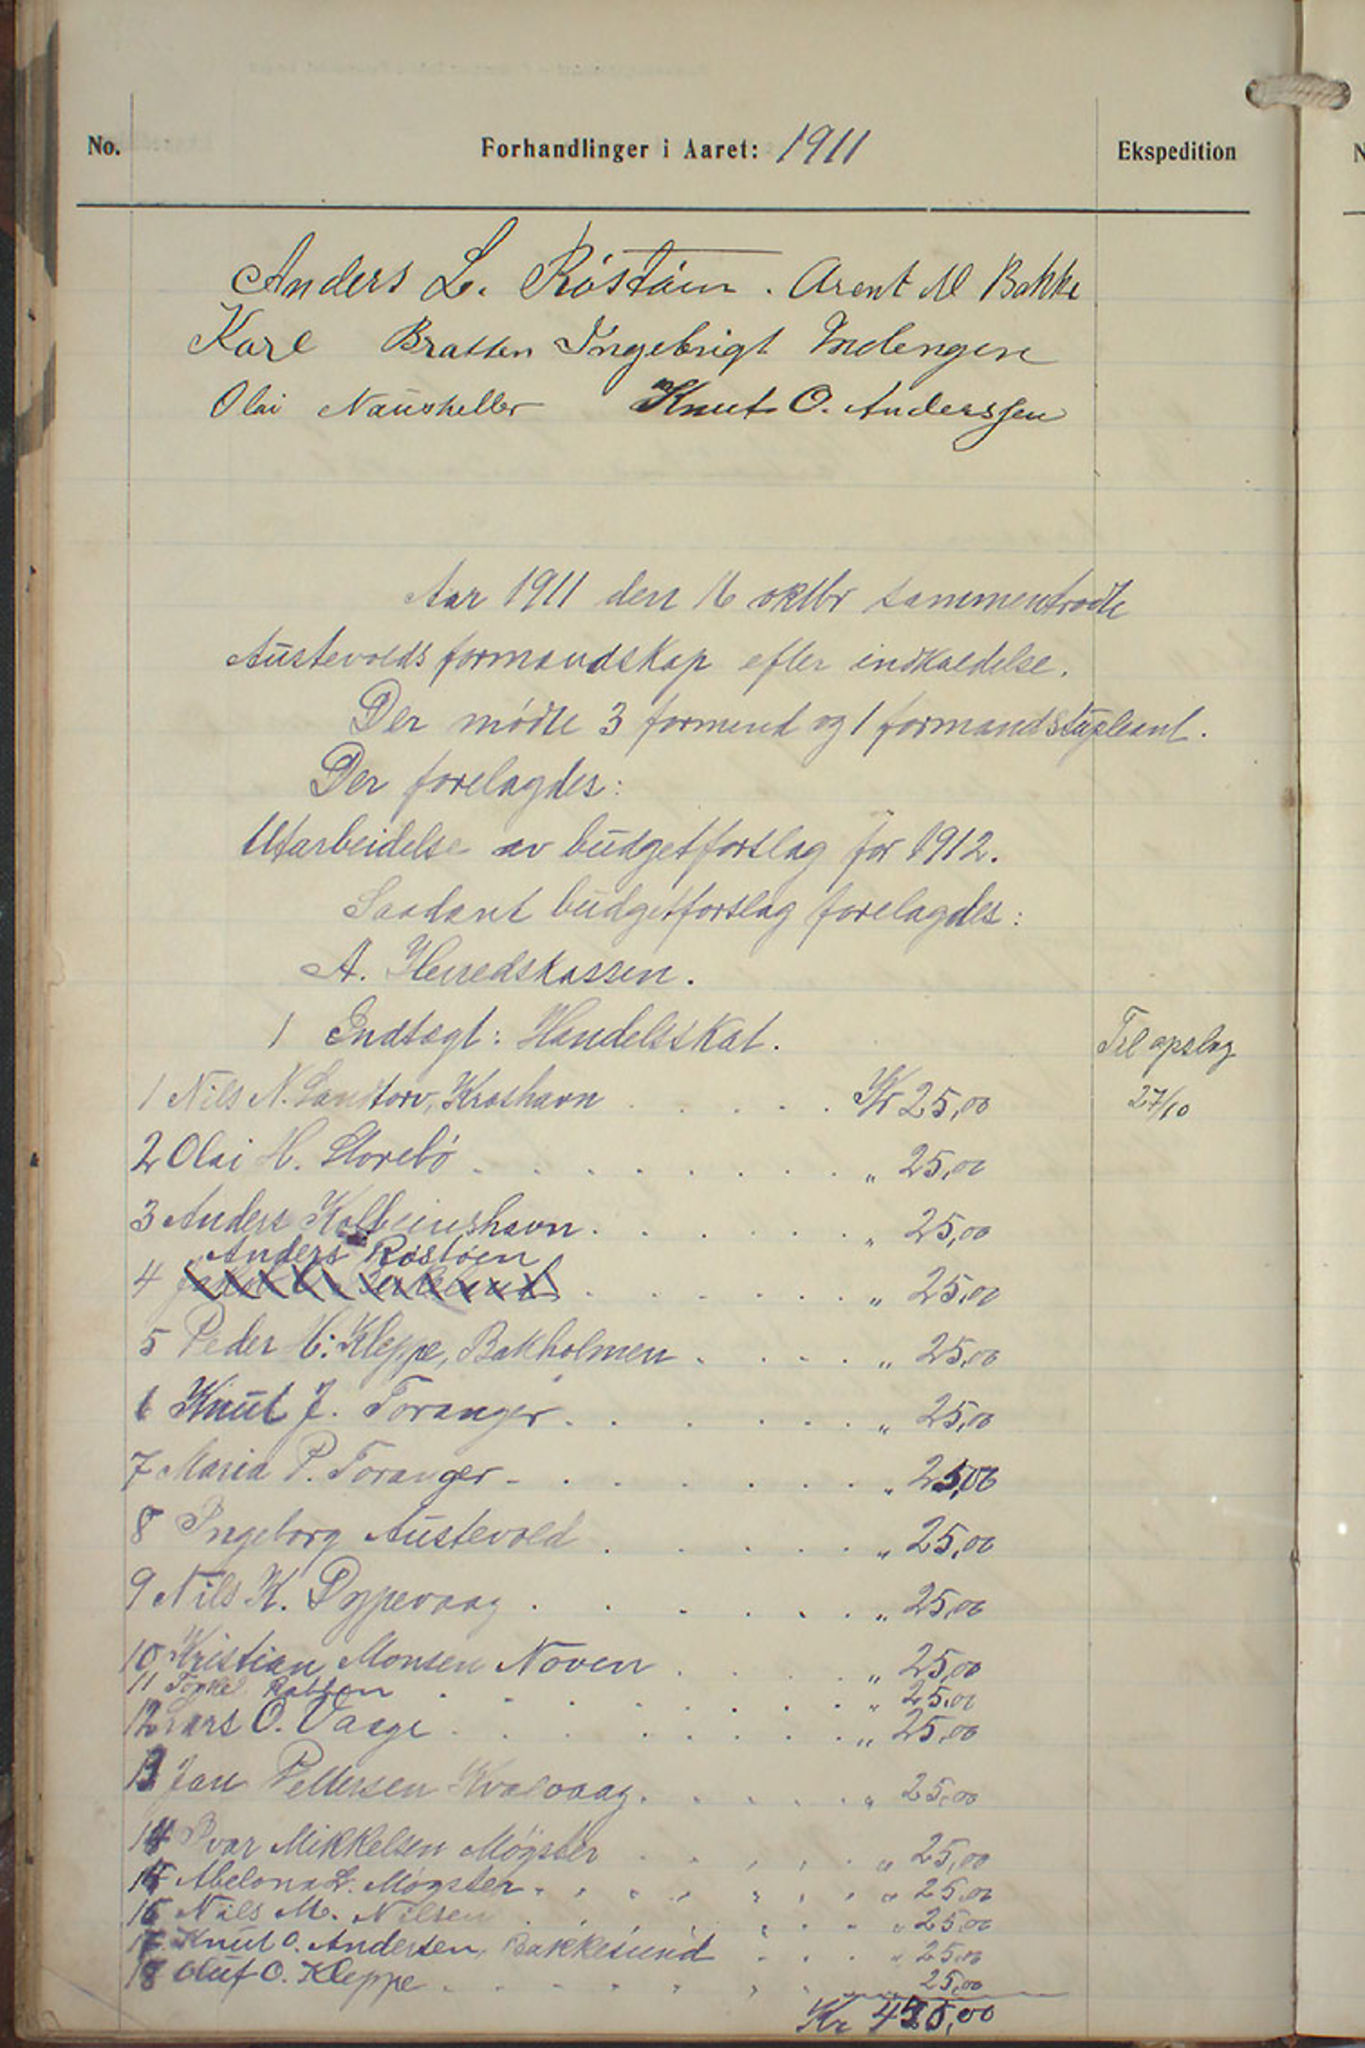 No.
Forhandlinger i Aaret: 1911
Ekspedition
Anders L. Röstöen. Arent M Bakke
Karl Bratten Ingebrigt Indengen
Olai Naustheller Knut O. Anderssen
Aar 1911 den 16 oktbr sammentraadte
Austevolds formandskap efter indkaldelse.
Der mødte 3 formend og 1 formandsupleant.
Der forelagdes:
Utarbeidelse av budgetforslag for 1912.
Saadant budgetforslag forelagdes:
A. Herredskassen.
1 Indtægt: Handelsskat.
Til opslag
27/10
1 Nils N. Landtorv, Kroshavn Kr 25,00
2 Olai H. Storebö " 25,00
3 Anders Kolbeinshavn " 25,00
Anders Röstöen
4 " 25,00
5 Peder H. Kleppe, Bakholmen " 25,00
6 Knut J. Toranger " 25,00
7 Maria P. Toranger " 25,00
8 Ingeborg Austevold " 25,00
9 Nils K. Dypevaag " 25,00
10 Kristian Monsen Noven " 25,00
11 Torkel Rabben " 25,00
12 Lars O. Vaage " 25,00
13 Jan Pettersen Kvalvaag " 25,00
14 Ivar Mikkelsen Møgster " 25,00
15 Abelona L. Møgster " 25,00
16 Nils M. Nilsen " 25,00
17 Knut O. Andersen, Bakkesund " 25,00
18 Oluf O. Kleppe 25,00
Kr